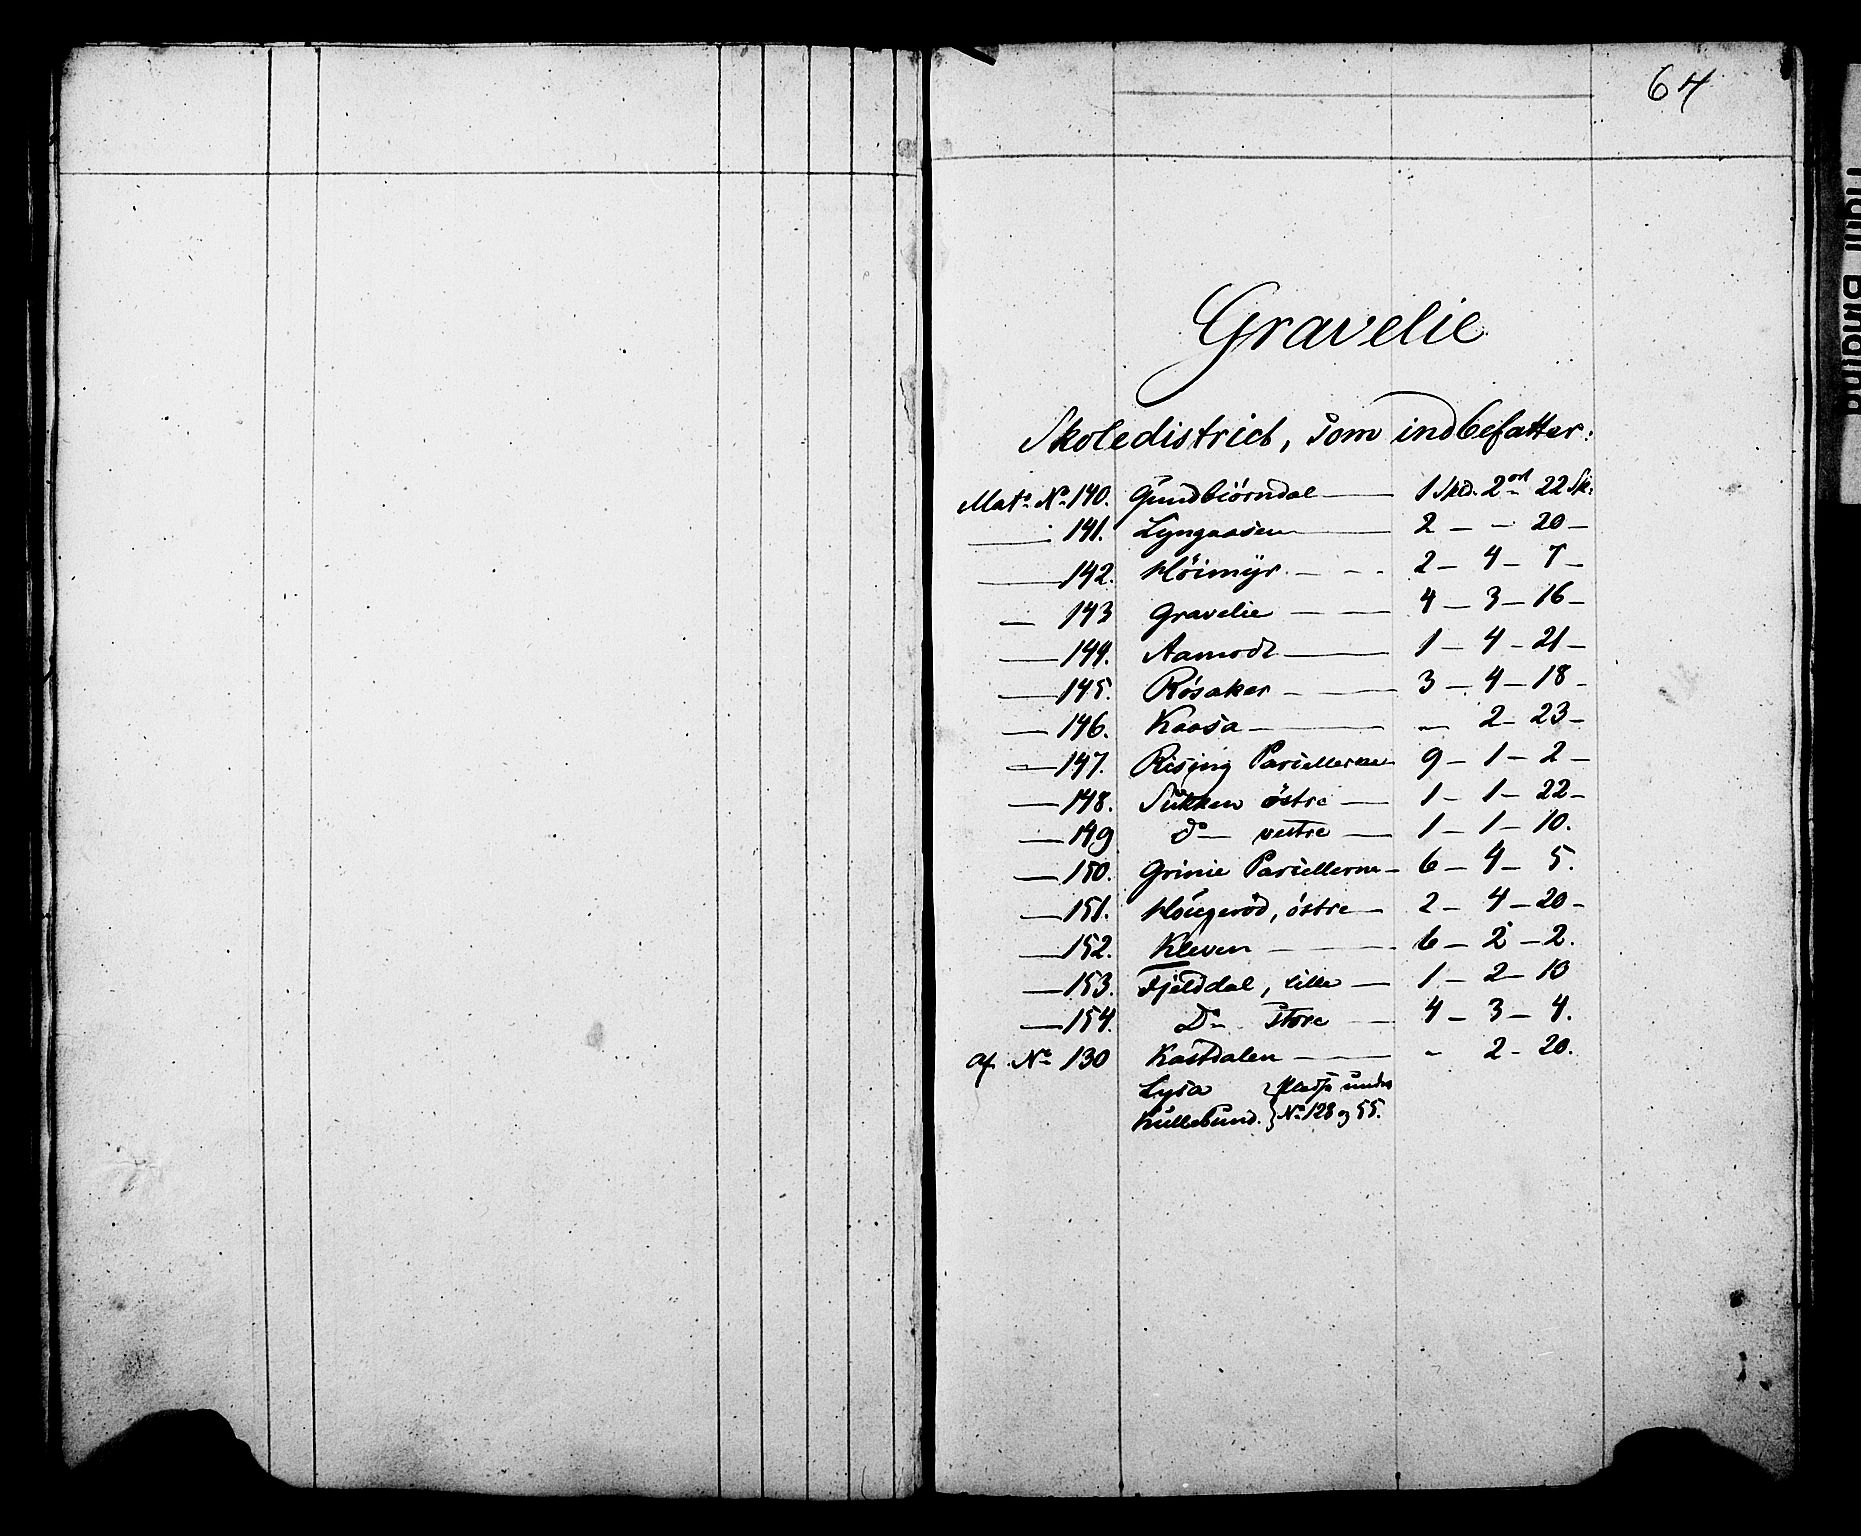 64
Gravelie
Skoledistrict, som indbefatter:
Mat. No 140. Gundbiörndal — 1 Skd. 2 ort 22 Sk:
— 141. Lyngaasen — 2 — - 20 —
— 142. Höimyr — 2 — 4 — 7 —
— 143 Gravelie — 4 — 3 — 16 —
— 144. Aamodt — 1 — 4 — 21 —
— 145. Røsaker — 3 — 4 — 18 -
— 146. Kaasa — - 2 — 23 —
— 147. Rising Parcellerne — 9 — 1 — 2 —
— 148. Sukken østre — 1 — 1 — 22 —
— 149 Do — vestre — 1 — 1 — 10.
— 150. Grinie Parcellerne — 6 — 4 — 5.
— 151. Hougeröd, östre — 2 — 4 — 20 -
— 152. Kleven — 6 — 2 — 2.
— 153. Fjelddal, lille — 1 — 2 — 10
— 154. Do store — 4 — 3 — 4.
Af No 130 Kastdalen — - 2 - 20.
Lysa } Pladse under
Kullebund. } No 128 og 55.